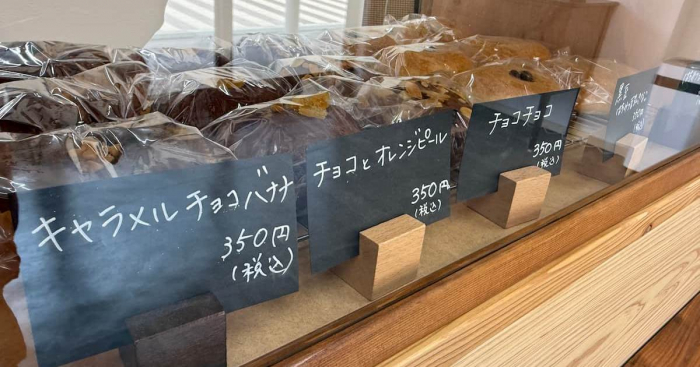 キャラメルチョコバナナ
350円
(税込)
チョコとオレンジピール
350円
(税込)
チョコチョコ
350円
(税込)
黒豆
350円
(税込)